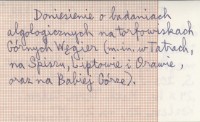 Doniesienie o badaniach
algologicznych na torfowiskach
Górnych Węgier (m.in. w Tatrach,
na Spiszu, Liptowie i Orawie,
oraz na Babiej Górze).